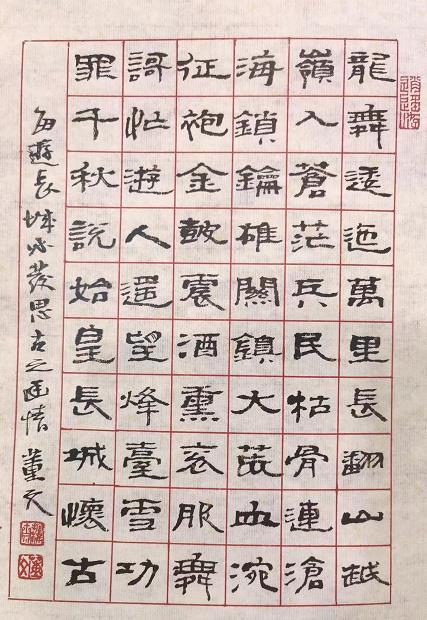 龍舞逶迤萬里長翻山越
嶺入蒼茫兵民枯骨連滄
海鎖鑰雄關鎮大荒血涴
征袍金鼓震酒熏衮服舞
哥忙遊人遥望烽臺雪功
罪千秋説始皇長城懷古
每遊長城必發思古之幽情 董文